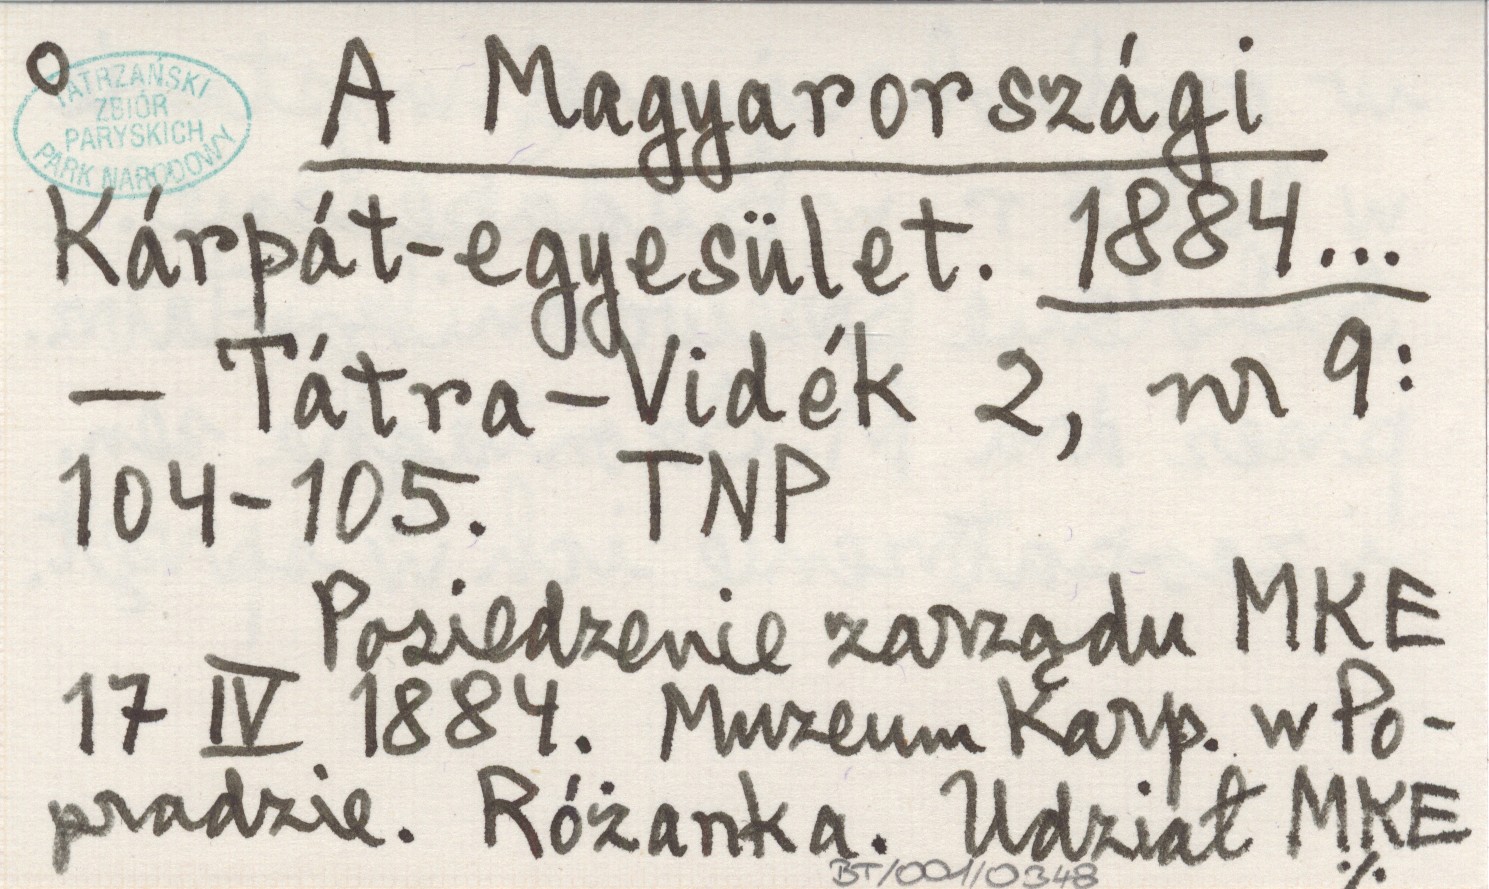 TATRZAŃSKI
ZBIÓR
PARYSKICH
PARK NARODOWY
A Magyarországi
Kárpát-egyesület. 1884...
— Tátra-Vidék 2, nr 9:
104-105. TNP
Posiedzenie zarządu MKE
17 IV 1884. Muzeum Karp. w Po-
pradzie. Różanka. Udział MKE
BT/001/0348 ./.